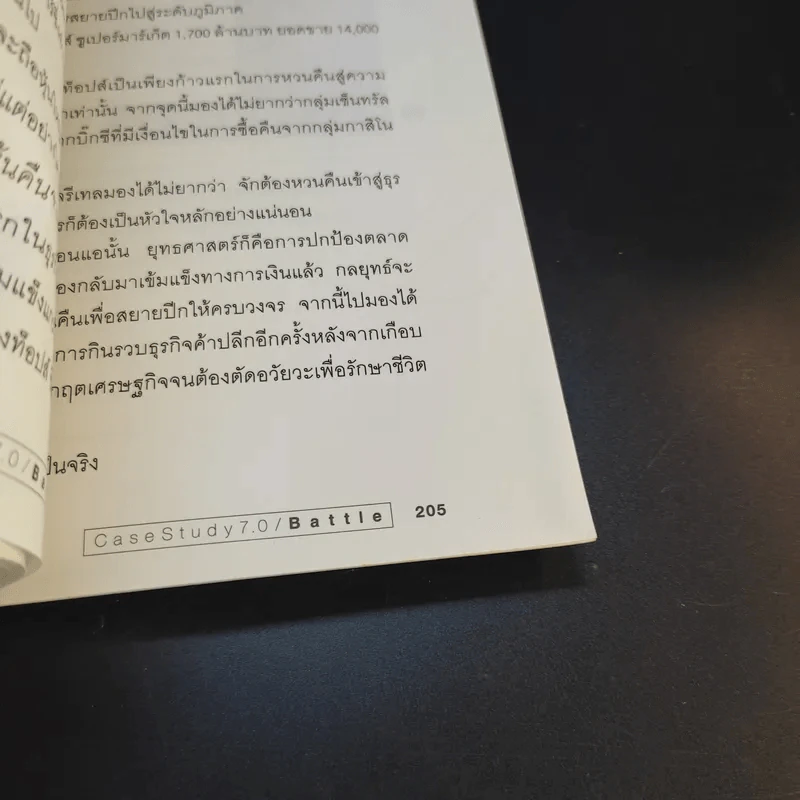 ยสยายปีกไปสู่ระดับภูมิภาค
ส์ ซูเปอร์มาร์เก็ต 1,700 ล้านบาท ยอดขาย 14,000
ท็อปส์เป็นเพียงก้าวแรกในการหวนคืนสู่ความ
าเท่านั้น จากจุดนี้มองได้ไม่ยากว่ากลุ่มเซ็นทรัล
ากบิ๊กซีที่มีเงื่อนไขในการซื้อคืนจากกลุ่มกาสิโน
ลรีเทลมองได้ไม่ยากว่า จักต้องหวนคืนเข้าสู่ธุร
รก็ต้องเป็นหัวใจหลักอย่างแน่นอน
อนแอนั้น ยุทธศาสตร์ก็คือการปกป้องตลาด
องกลับมาเข้มแข็งทางการเงินแล้ว กลยุทธ์จะ
คืนเพื่อสยายปีกให้ครบวงจร จากนี้ไปมองได้
การกินรวบธุรกิจค้าปลีกอีกครั้งหลังจากเกือบ
กฤตเศรษฐกิจจนต้องตัดอวัยวะเพื่อรักษาชีวิต
ป็นจริง
CaseStudy7.0/Battle 205